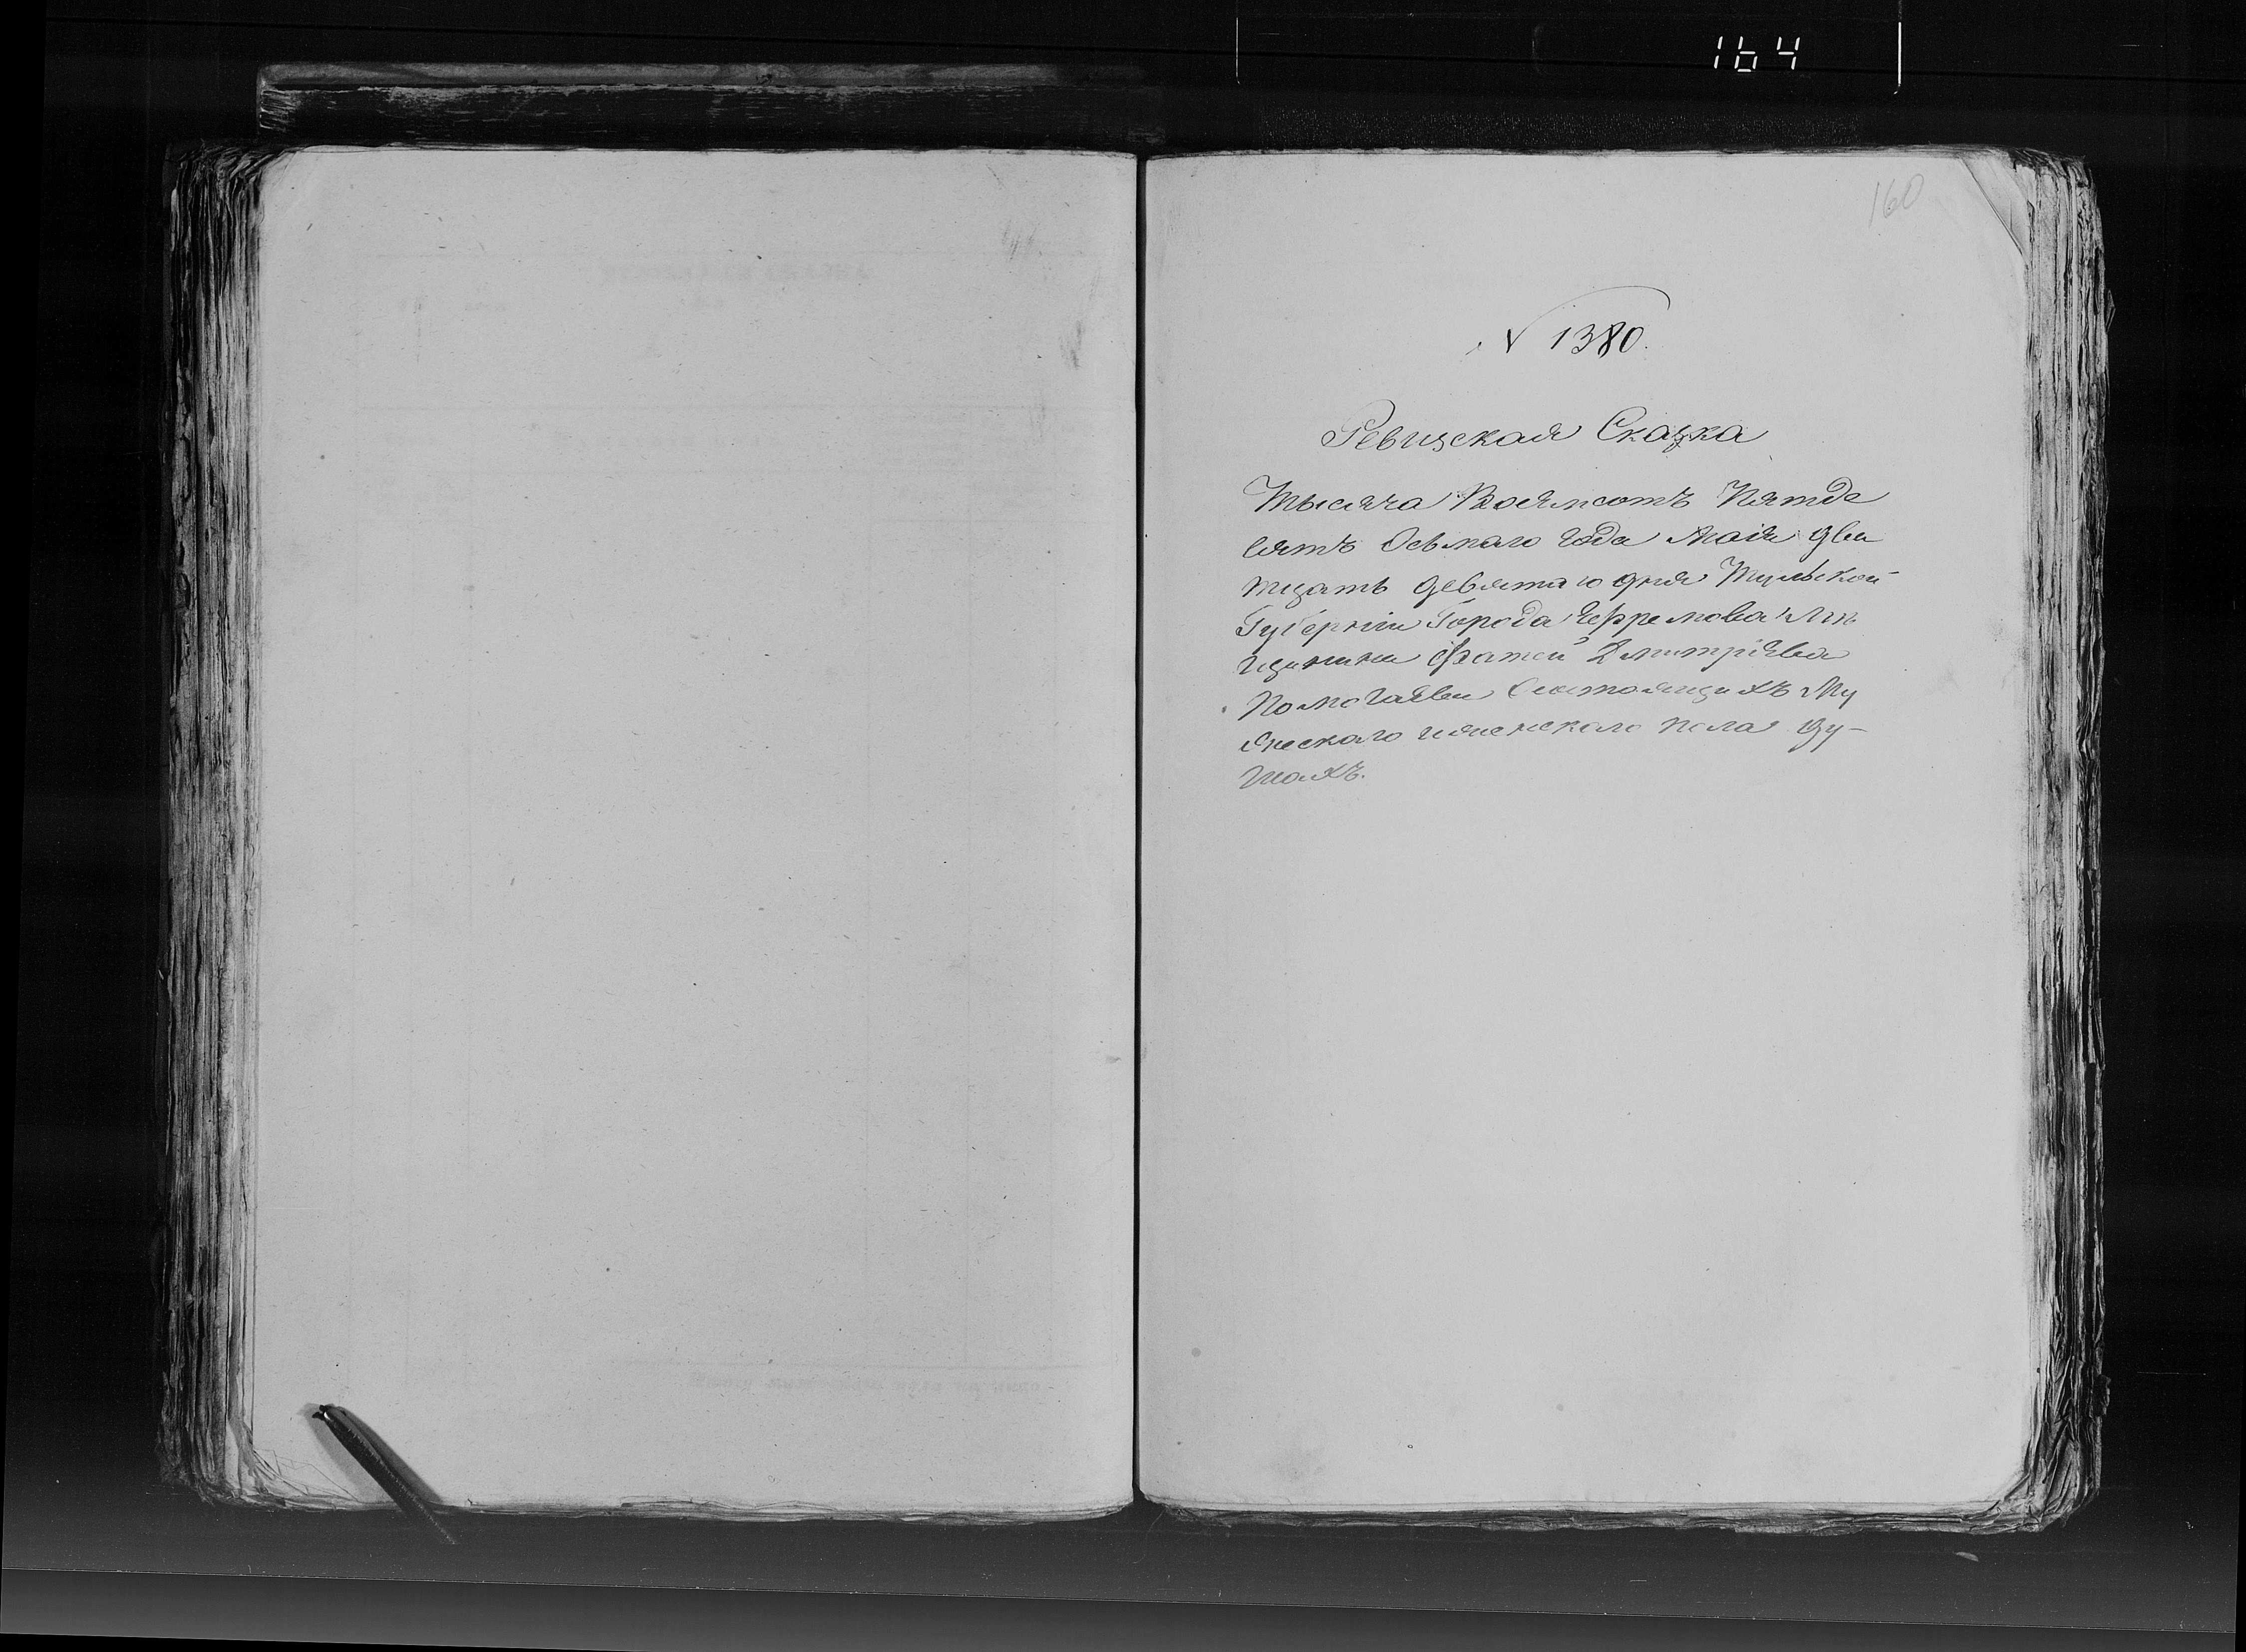 164
160
№ 1380.
Ревизская Сказка
Тысяча Восемсотъ Пятде
сятъ Осьмаго года Маія два
тцать девятаго дня Тульской
Губерніи Города Ефремова Мѣ
щанина Дмитріева
Состоящихъ Му
жескаго иженскаго пола ду-
шахъ.